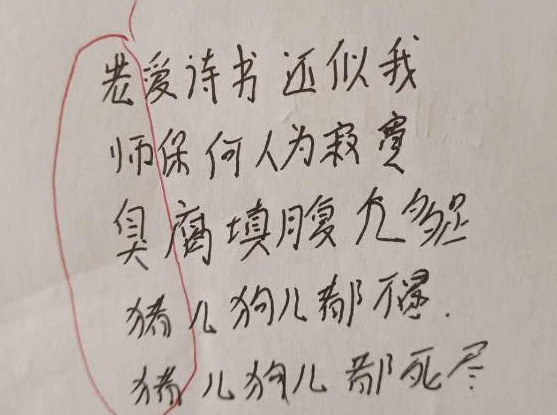 老爱诗书还似我
师保何人为寂寞
臭腐填腹允多
猪儿狗儿都不
猪儿狗儿都死尽